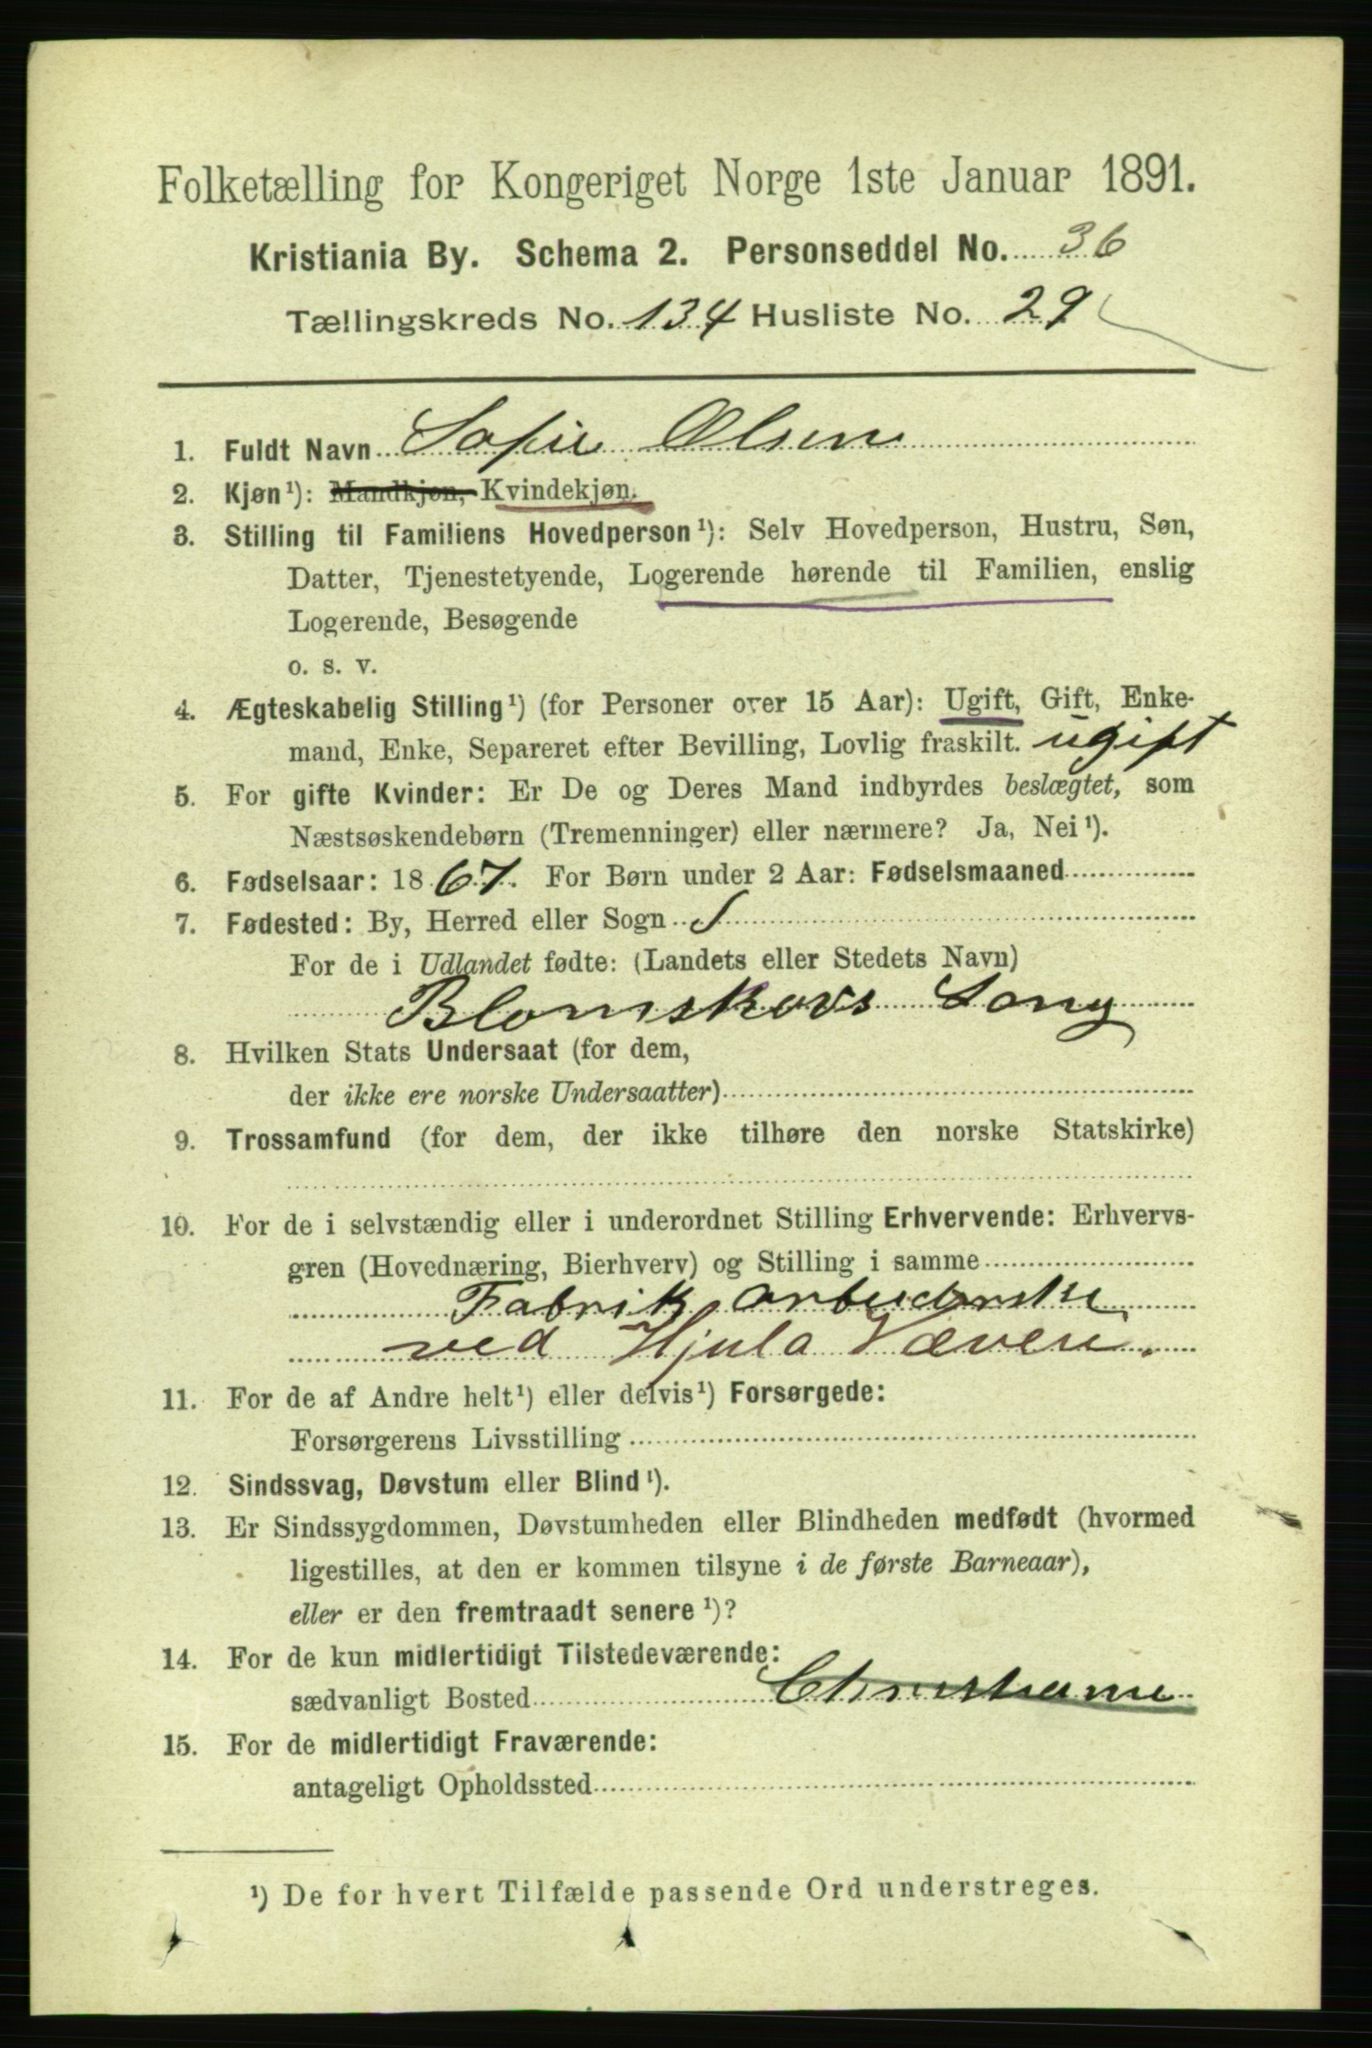 Folketælling for Kongeriget Norge 1ste Januar 1891.
Kristiania By. Schema 2. Personseddel No. 36
Tællingskreds No. 134 Husliste No. 29
1. Fuldt Navn Sofie Olsen
2. Kjøn¹): Mandkjøn, Kvindekjøn.
3. Stilling til Familiens Hovedperson¹): Selv Hovedperson, Hustru, Søn,
Datter, Tjenestetyende, Logerende hørende til Familien, enslig
Logerende, Besøgende
o. s. v.
4. Ægteskabelig Stilling¹) (for Personer over 15 Aar): Ugift, Gift, Enke-
mand, Enke, Separeret efter Bevilling, Lovlig fraskilt. ugift
5. For gifte Kvinder: Er De og Deres Mand indbyrdes beslægtet, som
Næstsøskendebørn (Tremenninger) eller nærmere? Ja, Nei¹).
6. Fødselsaar: 1867. For Børn under 2 Aar: Fødselsmaaned
7. Fødested: By, Herred eller Sogn S
For de i Udlandet fødte: (Landets eller Stedets Navn)
Blomskovs Song
8. Hvilken Stats Undersaat (for dem,
der ikke ere norske Undersaatter)
9. Trossamfund (for dem, der ikke tilhøre den norske Statskirke)
10. For de i selvstændig eller i underordnet Stilling Erhvervende: Erhvervs-
gren (Hovednæring, Bierhverv) og Stilling i samme
Fabrik arbeiderske
ved Hjula Væveri.
11. For de af Andre helt¹) eller delvis¹) Forsørgede:
Forsørgerens Livsstilling
12. Sindssvag, Døvstum eller Blind¹).
13. Er Sindssygdommen, Døvstumheden eller Blindheden medfødt (hvormed
ligestilles, at den er kommen tilsyne i de første Barneaar),
eller er den fremtraadt senere¹)?
14. For de kun midlertidigt Tilstedeværende:
sædvanligt Bosted Christiania
15. For de midlertidigt Fraværende:
antageligt Opholdssted
¹) De for hvert Tilfælde passende Ord understreges.